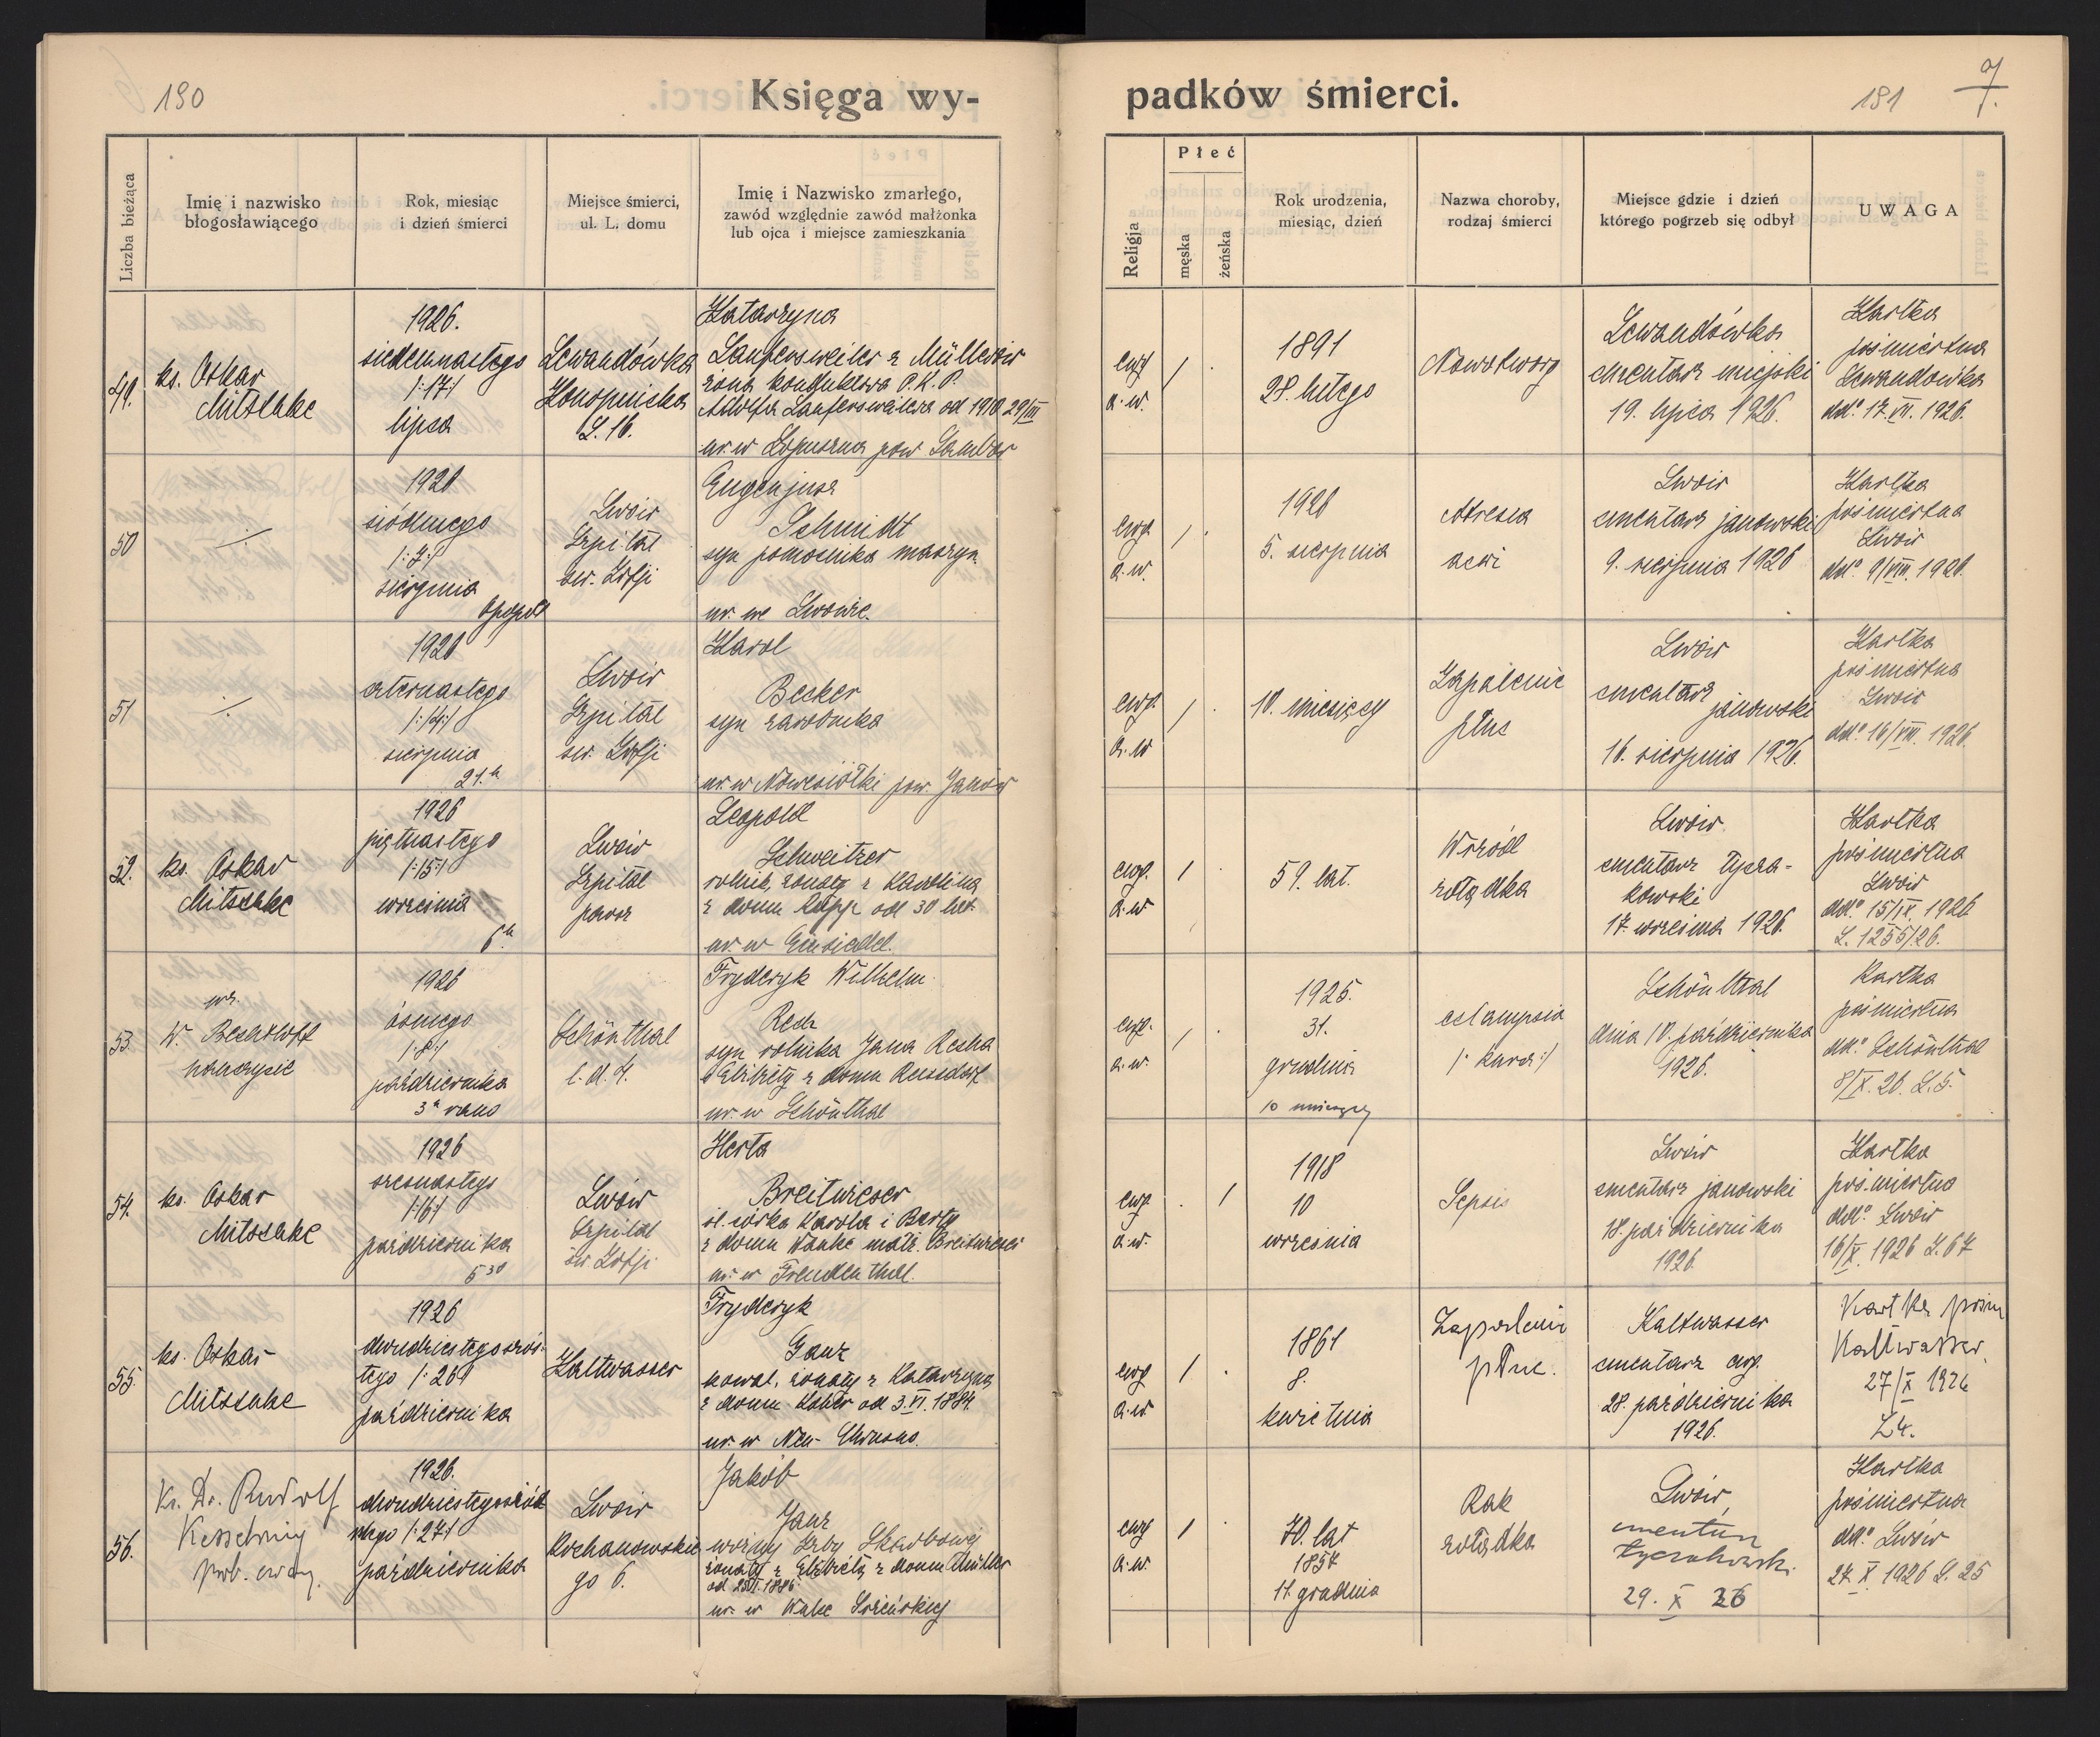 190
Księga wy-
padków śmierci.
191
7.
Liczba bieżąca
Imię i nazwisko
błogosławiącego
Rok, miesiąc
i dzień śmierci
Miejsce śmierci,
ul. L. domu
Imię i Nazwisko zmarłego,
zawód względnie zawód małżonka
lub ojca i miejsce zamieszkania
Religja
Płeć
męska
żeńska
Rok urodzenia,
miesiąc, dzień
Nazwa choroby,
rodzaj śmierci
Miejsce gdzie i dzień
którego pogrzeb się odbył
UWAGA
49.
ks. Oskar
Mitschke
1926.
siedemnastego
/:17:/
lipca
Lewandówka
Konopnicka
L. 16.
Katarzyna
Laufersweiler z Müllerów
żona konduktora P.K.P.
Adolfa Laufersweilera od 1910 29/III
ur. w Łopuszna pow. Sambor
ewg
a.w.
/
.
1891
28. lutego
Nowotwory
Lewandówka
cmentarz miejski
19. lipca 1926.
Kartka
pośmiertna
Lewandówka
dd.º 17. VII. 1926.
50
-/-
1926
siódmego
/:7:/
sierpnia
Lwów
Szpital
św. Zofji
Eugenjusz
Schmidt
syn pomocnika maszyn.
ur. we Lwowie.
ewg.
a.w.
/
.
1926
5. sierpnia
Atresia
ani
Lwów
cmentarz janowski
9. sierpnia 1926
Kartka
pośmiertna
Lwów
dd.º 9/VIII. 1926.
51
-/-
1926
czternastego
/:14:/
sierpnia
21.h
Lwów
Szpital
św. Zofji
Karol
Becker
syn zarobnika
ur. w Nowesiółki pow. Janów
ewg.
a.w
/
.
10. miesięcy
Zapalenie
płuc
Lwów
cmentarz
janowski
16. sierpnia 1926.
Kartka
pośmiertna
Lwów
dd.º 16/VIII. 1926.
52.
ks. Oskar
Mitschke
1926
piętnastego
/:15:/
września
6.h
Lwów
Szpital
powsz
Leopold
Schweitzer
rolnik, żonaty z Karoliną
z domu Rupp od 30 lat.
ur. w Einsiedel.
ewg.
a.w
/
59. lat.
Wrzód
żołądka
Lwów
cmentarz łycza-
kowski
17. września 1926.
Kartka
pośmiertna
Lwów
dd.º 15/IX. 1926
L. 1255/26.
53.
W.
nauczyciel
1926
ósmego
/:8:/
października
3h rano
Schönthal
l. d. 4.
Fryderyk Wilhelm
Resch
syn rolnika Jana Rescha
i Elżbiety z domu
ur. w Schönthal
ewg.
a.w.
/
.
1925.
31.
grudnia
10 miesięcy
eclampsia
Schönthal
dnia 10. października
1926.
Kartka
pośmiertna
dd.º Schönthal
8/X. 26. L. 5.
54.
ks. Oskar
Mitschke
1926
szesnastego
/:16:/
października
5 30
Lwów
Szpital
św. Zofji
Herta
Breitwieser
śl. córka Karola i Berty
z domu Wanke małż. Breitwieser
ur. w Freudenthal.
ewg.
a.w.
.
/
1918
10
września
Sepsis
Lwów
cmentarz janowski
18. października
1926
Kartka
pośmiertna
dd.º Lwów
16/X. 1926 L. 67
55.
ks. Oskar
Mitschke
1926
dwudziestegoszós-
tego /:26:/
października
Kaltwasser
Fryderyk
Ganz
kowal, żonaty z Katarzyną
z domu Kober od 3. VI. 1884.
ur. w Neu-Chrusno.
ewg
a.w.
/
.
1861
8.
kwietnia
Zapaleni
płuc.
Kaltwasser
cmentarz ewg.
28. października
1926.
Kartka pośm
Kaltwasser
27/X 1926
L 4.
56.
Ks. Dr. Rudolf
Kesselring
prob. ewang.
1926.
dwudziestegosiód-
mego /:27:/
października
Lwów
Kochanowskie-
go 6.
Jakób
Janz
woźny Izby Skarbowej
żonaty z Elżbietą z domu Müller
od 1886.
ur. w
ewg
a.w.
/
.
70. lat
1857
17. grudnia
Rak
żołądka
Lwów,
cmentarz
łyczakowski.
29. X 26
Kartka
pośmiertna
dd.º Lwów
27. X. 1926 L. 25